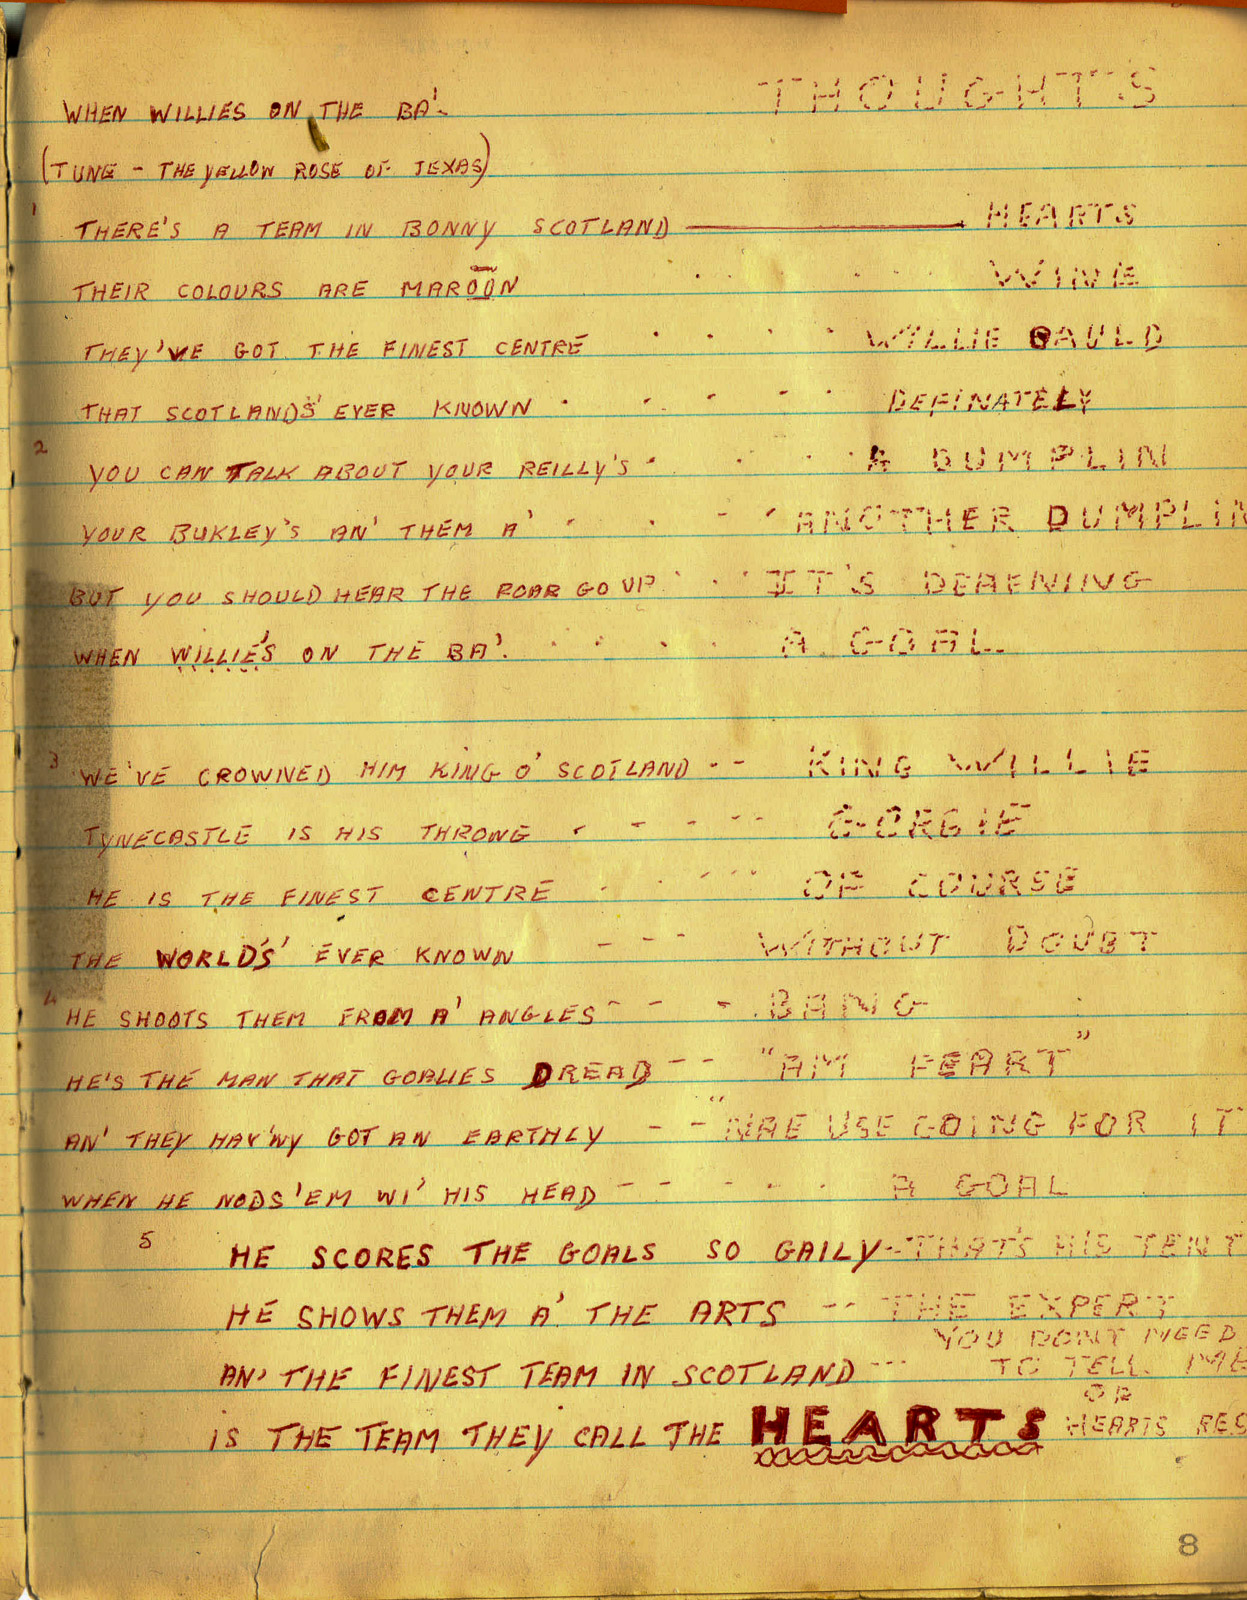 THOUGHT'S
WHEN WILLIES ON THE BA'.
(TUNE - THE YELLOW ROSE OF TEXAS)
1 THERE'S A TEAM IN BONNY SCOTLAND — HEARTS
THEIR COLOURS ARE MAROON . . . . . WINE
THEY'VE GOT THE FINEST CENTRE . . . . WILLIE BAULD
THAT SCOTLANDS' EVER KNOWN . . . - - DEFINATELY
2 YOU CAN TALK ABOUT YOUR REILLY'S . . . . A DUMPLIN
YOUR BUKLEY'S AN' THEM A' . . - - ' ANOTHER DUMPLIN
BUT YOU SHOULD HEAR THE ROAR GO UP . . . IT'S DEAENING
WHEN WILLIE'S ON THE BA'. . . . . A GOAL
3 WE'VE CROWNED HIM KING O' SCOTLAND -- KING WILLIE
TYNECASTLE IS HIS THRONG - - - -- GORGIE
HE IS THE FINEST CENTRE . . --- OF COURSE
THE WORLD'S' EVER KNOWN - - - WITHOUT DOUBT
4 HE SHOOTS THEM FROM A' ANGLES - - - BANG
HE'S THE MAN THAT GOALIES DREAD -- "AM FEART"
AN' THEY HAV'NY GOT AN EARTHLY - - "NAE USE GOING FOR IT
WHEN HE NODS 'EM WI' HIS HEAD - - - - . A GOAL
5 HE SCORES THE GOALS SO GAILY -- THAT'S HIS TENT
HE SHOWS THEM A' THE ARTS -- THE EXPERT
AN' THE FINEST TEAM IN SCOTLAND --- YOU DONT NEED
TO TELL ME
OR
IS THE TEAM THEY CALL THE HEARTS HEARTS RES
8